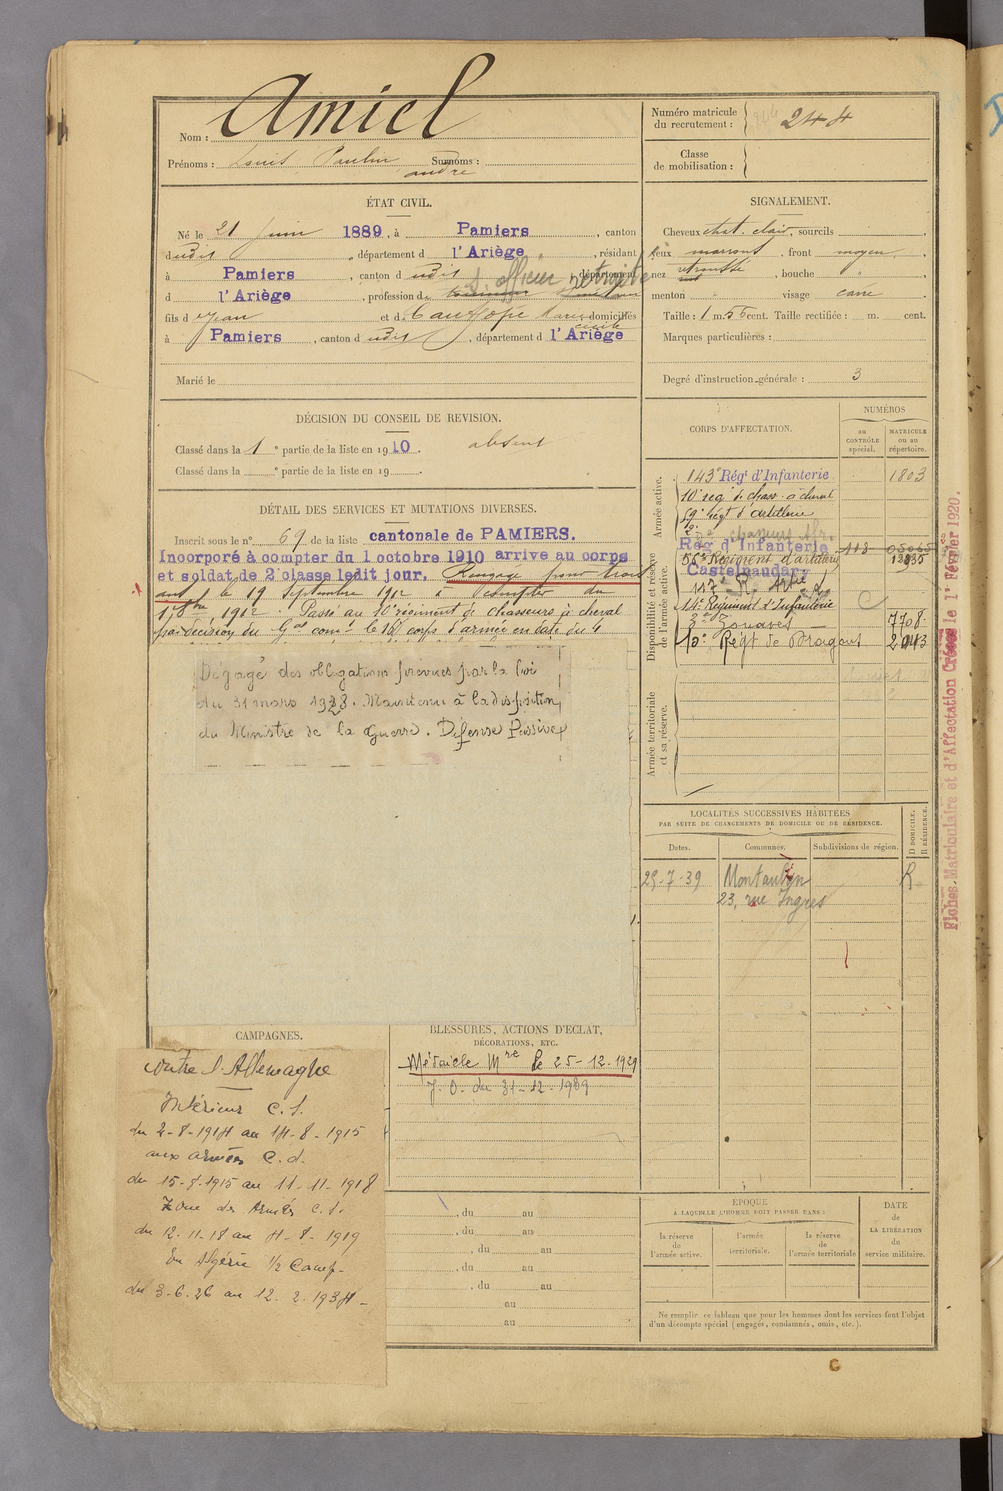 Nom : Amiel
Prénoms : Louis Paulin Surnoms :
andré
Numéro matricule
du recrutement : 244
Classe
de mobilisation :
ÉTAT CIVIL.
Né le 21 juin 1889, à Pamiers, canton
dudit, département d l'Ariège, résidant
à Pamiers, canton d udit, département
d l'Ariège, profession de
s. officier retraité
fils d e Jean et d e domiciliés
à Pamiers, canton d udit, département d l'Ariège
Marié le
SIGNALEMENT.
Cheveux chat. clair, sourcils
yeux marrons, front moyen
nez retroussé, bouche "
menton " visage carré
Taille : 1 m. 56 cent. Taille rectifiée : m. cent.
Marques particulières :
Degré d'instruction générale : 3
DÉCISION DU CONSEIL DE REVISION.
Classé dans la 1e partie de la liste en 1910. absent
Classé dans la e partie de la liste en 19 .
DÉTAIL DES SERVICES ET MUTATIONS DIVERSES.
Inscrit sous le n° 69 de la liste cantonale de PAMIERS.
Incorporé à compter du 1 octobre 1910 arrive au corps
et soldat de 2e classe ledit jour. Rengagé pour trois
ans le 19 Septembre 1912 à compter du
1er 8bre 1912. Passé au 10e régiment de chasseurs à cheval
par décision du Gal comt le 16e corps d'armée en date du 4
Dégagé des obligations prévues par la loi
du 31 mars 1928. Maintenu à la disposition
du Ministre de la Guerre. Defense Passive
CORPS D'AFFECTATION.
NUMÉROS
au
CONTRÔLE
spécial.
MATRICULE
ou au
répertoire.
Armée active.
143e Régt d'Infanterie 1803
10e reg t de chass. à cheval
59e Régt d'artillerie
chasseurs Afr.
Disponibilité et réserve
de l'armée active.
Rég d'Infanterie 118
56e Régiment d'artillerie
Castelnaudary
117e R. Artie
14e Régiment d'Infanterie
3e Zouaves 7708
10e Régt de Dragons
Armée territoriale
et sa réserve.
LOCALITÉS SUCCESSIVES HABITÉES
PAR SUITE DE CHANGEMENTS DE DOMICILE OU DE RÉSIDENCE.
Dates. Communes. Subdivisions de région.
D DOMICILE.
R RÉSIDENCE.
25-7-39 Montauban R
23, rue Ingres
Fiches Matriculaire et d'Affectation Créées le 1er Février 1920.
CAMPAGNES.
Contre l'Allemagne
Intérieur C. S.
du 2-8-1914 au 14-8-1915
aux armées C. d.
du 15-8-1915 au 11-11-1918
Zone des Armées C. S.
du 12-11-18 au 4-8-1919
En Algérie 1/2 Camp.
du 3-6-26 au 12-2-1934
BLESSURES, ACTIONS D'ÉCLAT,
DÉCORATIONS, ETC.
Médaille Mre le 25-12-1929
J. O. du 31-12-1929
, du au
, du au
, du au
, du au
, du au
au
au
ÉPOQUE
À LAQUELLE L'HOMME DOIT PASSER DANS :
la réserve
de
l'armée active.
l'armée
territoriale.
la réserve
de
l'armée territoriale
DATE
de
LA LIBÉRATION
du
service militaire.
Ne remplir ce tableau que pour les hommes dont les services font l'objet
d'un décompte spécial (engagés, condamnés, omis, etc.).